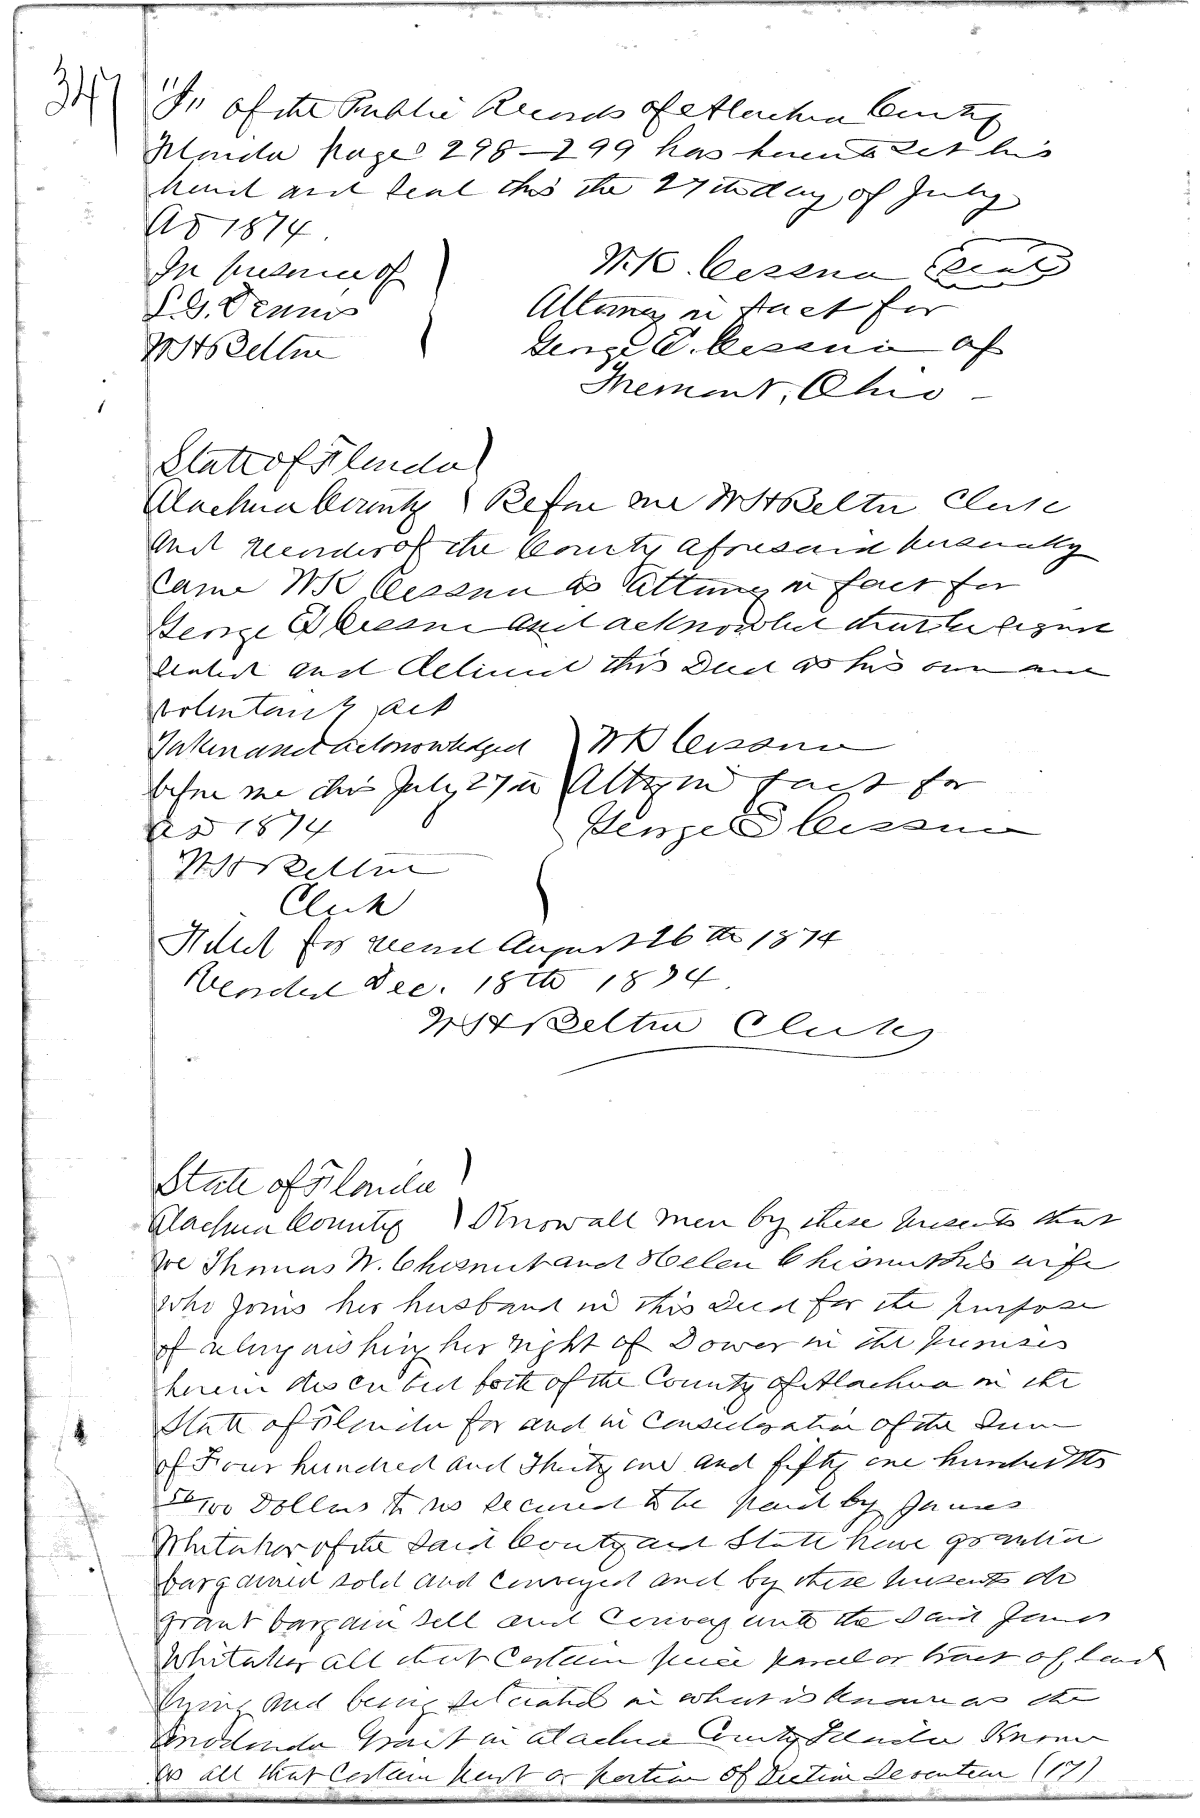 347
"J" of the Public Records of Alachua County
Florida page 298–299 has hereunto set his
hand and seal this the 27th day of July
AD 1874.
In presence of
L.G. Dennis
WH Belton
W.K. Cessna (Seal)
Attorney in fact for
George E. Cessna of
Fremont, Ohio –
State of Florida
Alachua County Before me WH Belton Clerk
and recorder of the County aforesaid personally
came WK Cessna as Attorney in fact for
George E Cessna and acknowled that he signed
sealed and delivered this Deed as his own and
voluntary act
Taken and acknowledged
before me this July 27th
AD 1874
WH Belton
Clerk
WK Cessna
Atty in fact for
George E Cessna
Filed for record August 26th 1874
Recorded Dec. 18th 1874.
WH Belton Clerk
State of Florida
Alachua County Know all men by these presents that
we Thomas W. Chesnut and Helen Chisnut his wife
who joins her husband in this Deed for the purpose
of relinquishing her right of Dower in the premises
herein described both of the County of Alachua in the
State of Florida for and in consideration of the Sum
of Four hundred and Thirty one and fifty one hundredths
50/100 Dollars to us secured to be paid by James
Whitaker of the said County and State have granted
bargained sold and conveyed and by these presents do
grant bargain sell and convey unto the said James
Whitaker all that certain piece parcel or tract of land
lying and being situated in what is known as the
Arredondo Grant in Alachua County Florida Known
as all that certain part or portion of Section Seventeen (17)